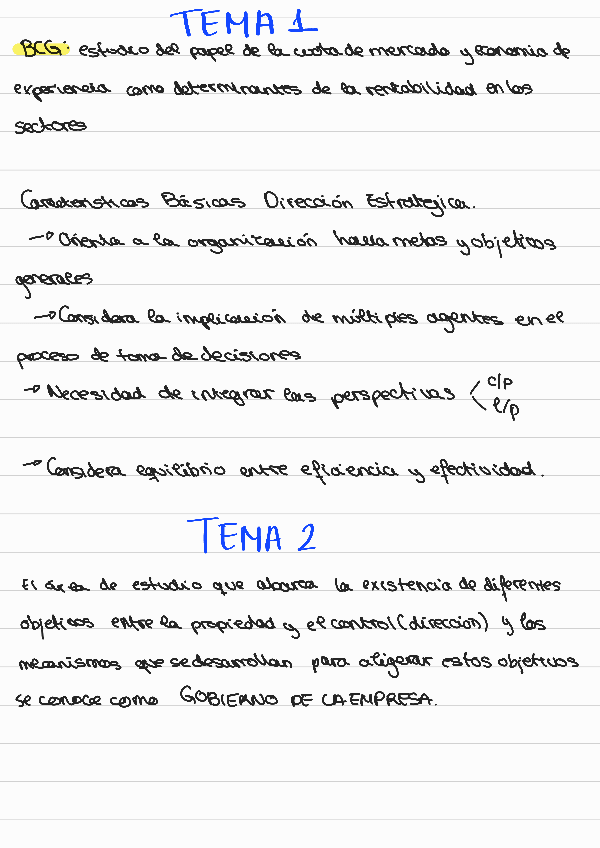 TEMA 1
BCG: estudio del papel de la cuota de mercado y economía de
experiencia como determinantes de la rentabilidad en los
sectores
Características Básicas Dirección Estratégica.
→ Orienta a la organización hacia metas y objetivos
generales
→ Considera la implicación de múltiples agentes en el
proceso de toma de decisiones
→ Necesidad de integrar las perspectivas < c/p
l/p
→ Considera equilibrio entre eficiencia y efectividad.
TEMA 2
El área de estudio que abarca la existencia de diferentes
objetivos entre la propiedad y el control (dirección) y los
mecanismos que se desarrollan para aligerar estos objetivos
se conoce como GOBIERNO DE LA EMPRESA.